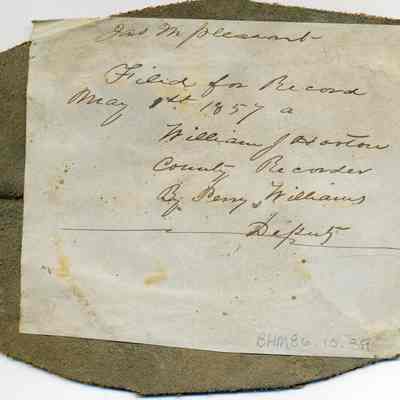 Jno M pleasant
Filed for Record
May 1st 1857 a
William J Horton
County Recorder
By Perry Williams
Deputy
BHM86.10.39